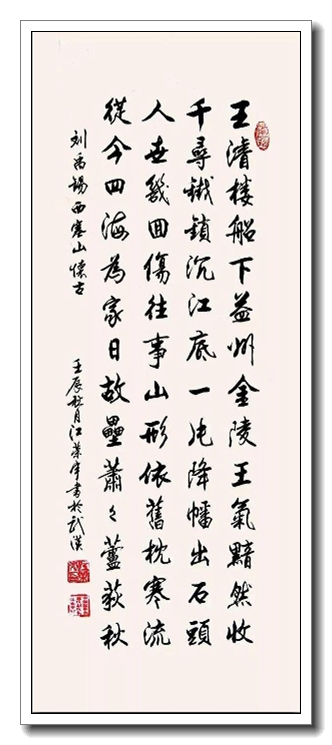 王濬楼船下益州金陵王氣黯然收
千尋鐵鎖沉江底一片降幡出石頭
人世幾回傷往事山形依舊枕寒流
從今四海為家日故壘蕭々蘆荻秋
刘禹锡西塞山懷古
壬辰秋月江荣宇書於武漢